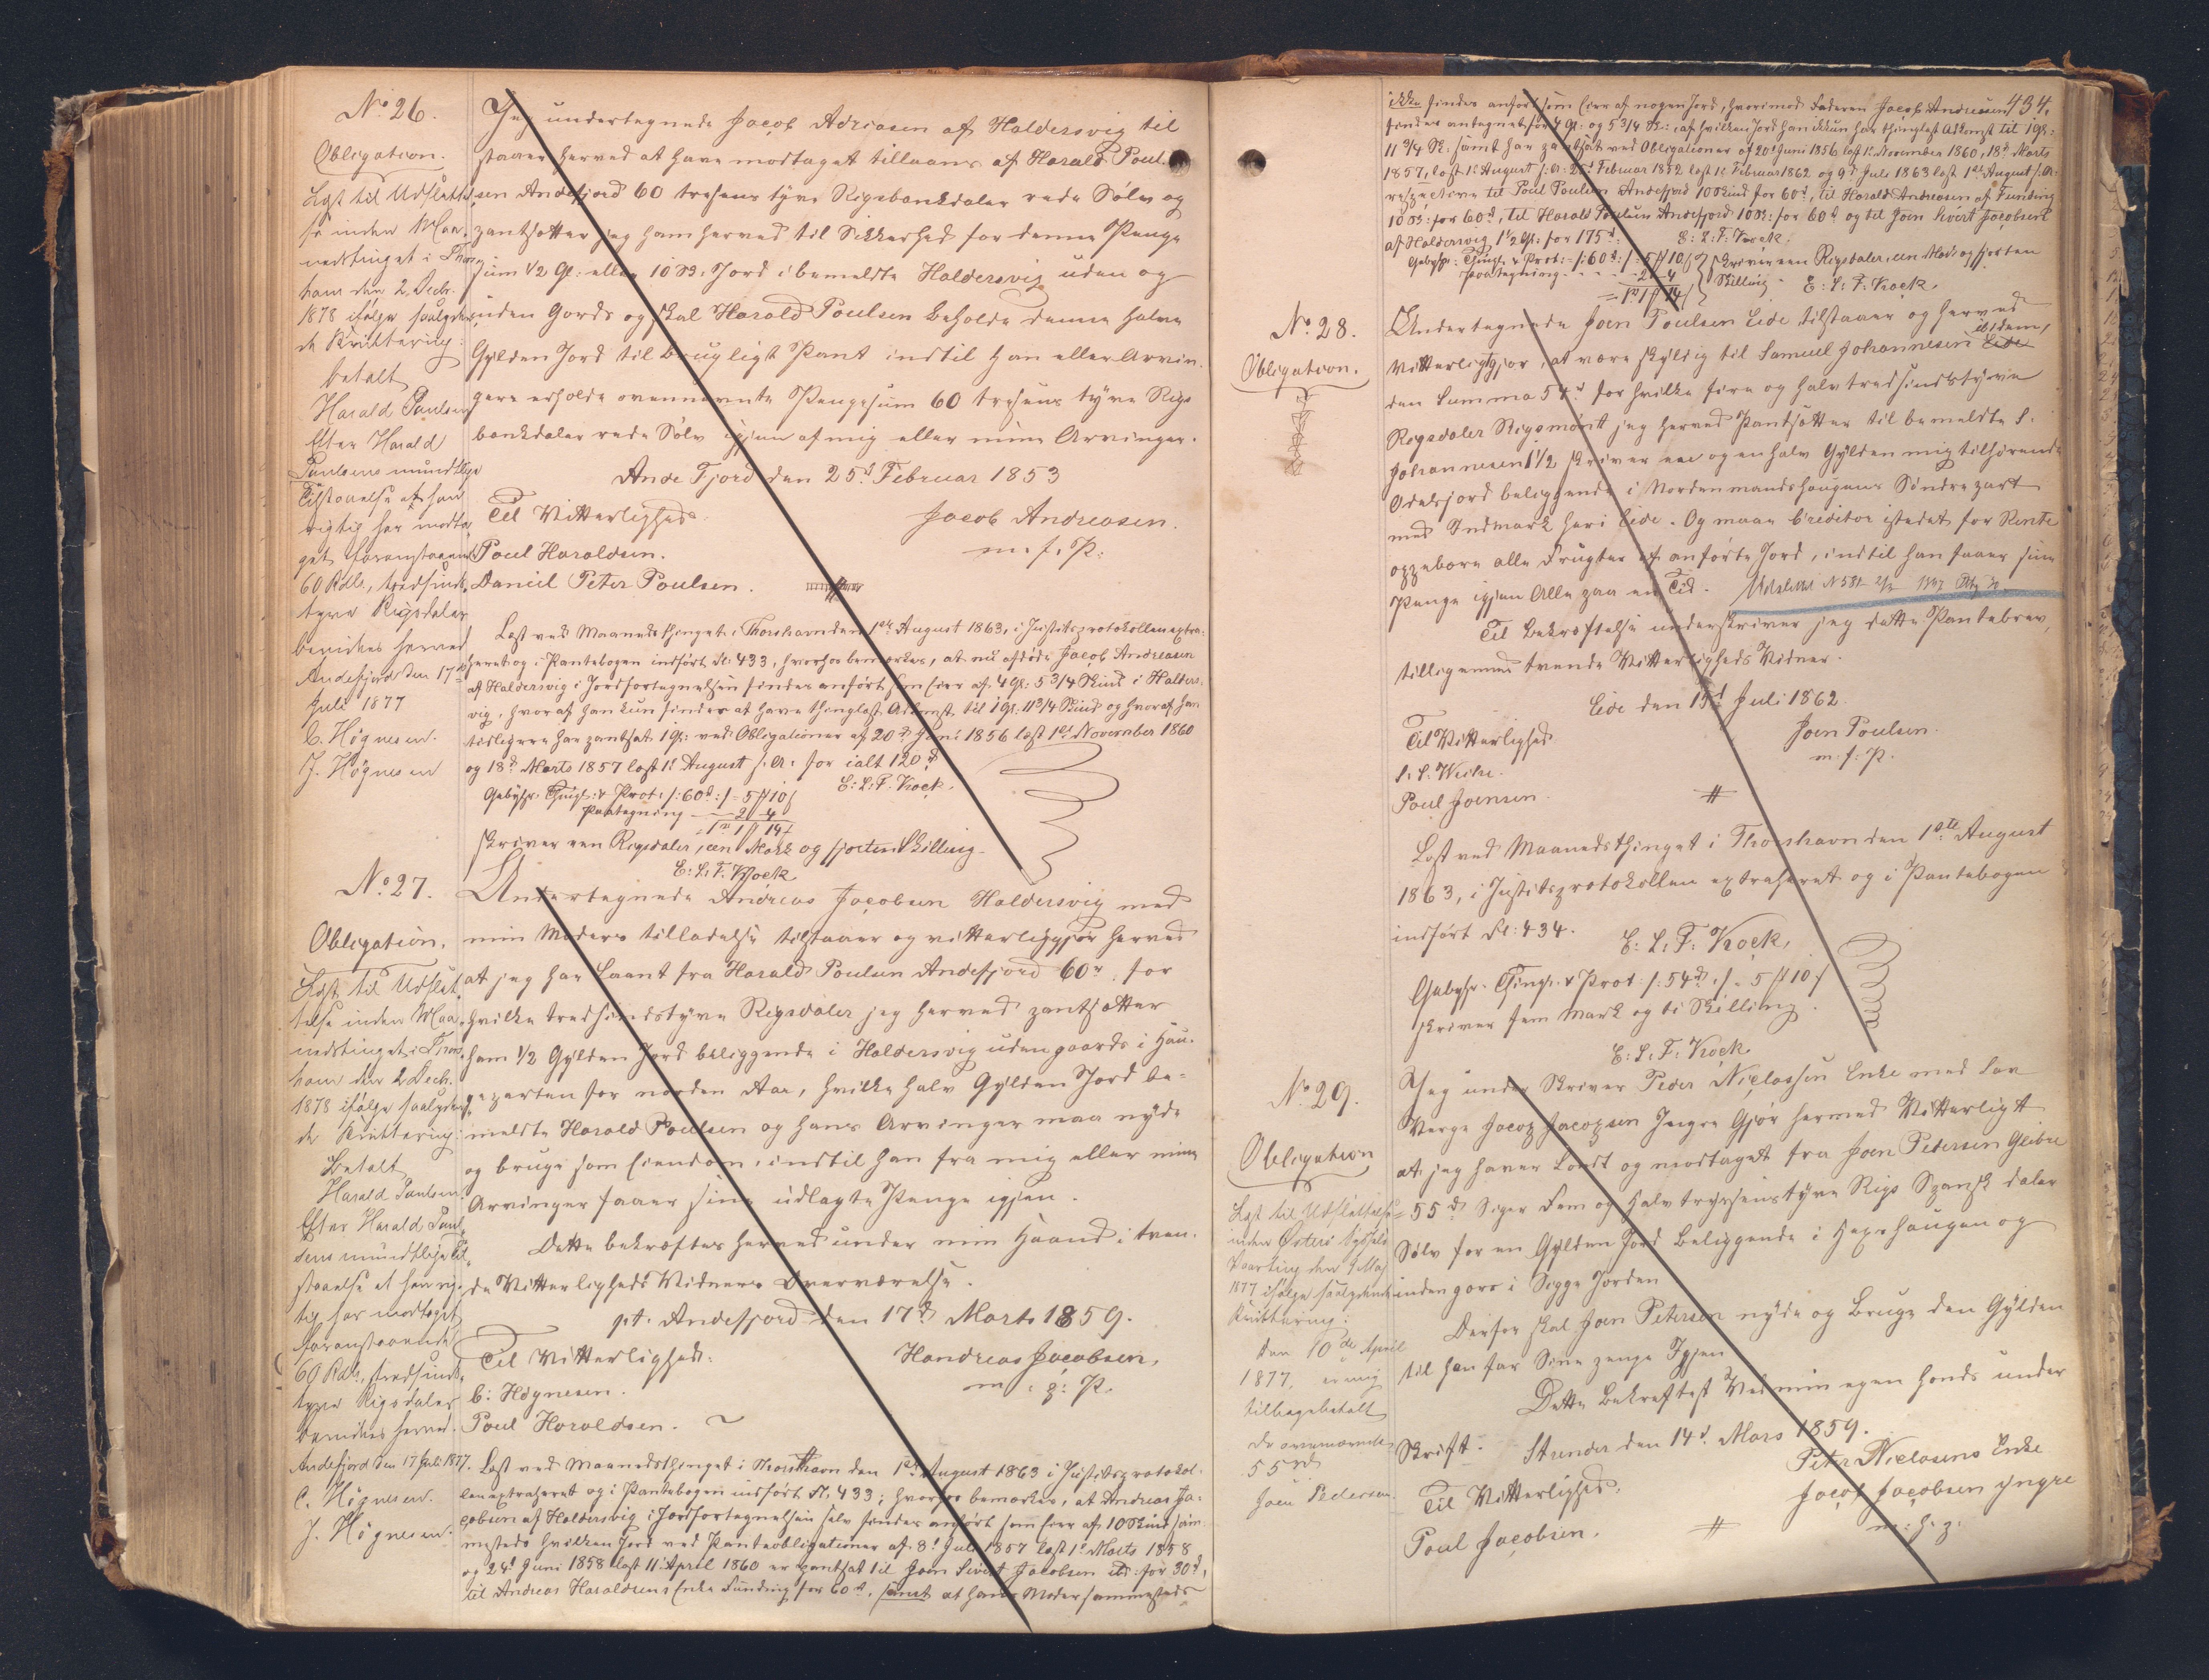 No 26.
Obligation.
Læst til Udslettel-
se inden Maa-
nedstinget i Thors-
havn den 2 Decb.
1878 ifølge saalyden-
de Kvittering:
betalt
Harald Paulsen
Efter Harald
Paulsens mundtlige
Tilstaaelse at han
rigtig har modta-
get foranstaaende
60 Rdlr, tredsinds-
tyve Rigsdaler
bevidnes herved
Andefjord den 17de
Juli 1877
C. Högnesen.
J. Högnesen
Jeg undertegnede Jacob Adriasen af Haldersvig til
staaer herved at have modtaget tillaans af Harald Poul-
sen Andefjord 60 tresens tyve Rigsbankdaler rede Sølv og
pantsætter jeg ham herved til Sikkerhed for denne Penge
sum 1/2 Gl: eller 10 Sk. Jord i bemeldte Haldersvig uden og
inden Gards og skal Harald Poulsen beholde denne halve
Gylden Jord til brugligt Pant indtil han eller Arvin-
gere erholde ovennævnte Pengesum 60 tresens tyve Rigs
bankdaler rede Sølv igjen af mig eller mine Arvinger.
Ande Fjord den 25d Februar 1853
Til Vitterlighed
Jacob Andreasen.
m. f. P:
Poul Haraldsen.
Daniel Peter Poulsen.
Læst ved Maanedsthinget i Thorshavn den 1ste August 1863, i Justitsprotokollen extra-
heret og i Pantebogen indført Fl. 433, hvorhos bemærkes, at nu afdøde Jacob Andreasen
af Haldersvig i Jordfortegnelsen findes anført som Eier af 4 Gl: 5 3/4 Skind i Halders-
vig, hvoraf han kun findes at have thinglæst Adkomst til 1 Gl. 11 3/4 Skind og hvoraf han
tidligere har pantsat 1 Gl: ved Obligationer af 20d Juni 1856 læst 1ste November 1860
og 18d Marts 1857 læst 1. August s. A: for ialt 120d
E: L: F. Krock.
Gebyhr. Thingl: & Prot: /:60d:/ = 5 ℳ 10 ß
Paategning — 2 " 4
= 1d 1 ℳ 14 ß
skriver een Rigsdaler, een Mark og fjorten Skilling
E: L: F. Krock
No 27.
Obligation.
Læst til Udslet-
telse inden Maa-
nedstinget i Thors-
havn den 2 Decb.
1878 ifølge saalyden-
de Kvittering:
Betalt
Harald Paulsen
Efter Harald Paul-
sens mundtlige til-
staaelse at han rig-
tig har modtaget
foranstaaende
60 Rdlr, tredsinds-
tyve Rigsdaler
bevidnes herved.
Andefjord den 17 Juli 1877.
C. Högnesen.
J. Högnesen.
Undertegnede Andreas Jacobsen Haldersvig med
min Moders tilladelse tilstaaer og vitterliggjør herved
at jeg har Laant fra Harald Poulsen Andefjord 60d. for
hvilke tredsindstyve Rigsdaler jeg herved pantsætter
ham 1/2 Gylden Jord beliggende i Haldersvig uden gaards i Hau-
geparten for norden Aae, hvilke halv Gylden Jord be-
meldte Harald Poulsen og hans Arvinger maa nyde
og bruge som Eiendom, indtil han fra mig eller mine
Arvinger faaer sine udlagte Penge igjen.
Dette bekræftes herved under min Haand i tven-
de Vitterligheds Vidners Overværelse.
pt. Andefjord den 17d Marts 1859.
Til Vitterlighed:
Handreas Jacobsen,
m: p: P.
C: Högnesen.
Poul Haraldsen.
Læst ved Maanedsthinget i Thorshavn den 1ste August 1863 i Justitsprotokol-
len extraheret og i Pantebogen indført Fl. 433; hvorhos bemærkes, at Andreas Ja-
cobsen af Haldersvig i Jordfortegnelsen selv findes anført som Eier af 10 Skind sam-
mesteds hvilken Jord ved Panteobligationer af 8d Juli 1857 læst 1ste Marts 1858
og 24d Juni 1858 læst 11 April 1860 er pantsat til Joen Sivert Jacobsen for 30d,
til Andreas Haraldsens Enke Funding for 60d, samt at hans Moder sammesteds
434.
ikke findes anført som Eier af nogen Jord, hvorimod Faderen Jacob Andreasen
findes antegnet for 4 Gl: og 5 3/4 Sk:, af hvilken Jord han ikkun har thinglæst Adkomst til 1 Gl:
11 3/4 Sk: samt har pantsat ved Obligationer af 20d Juni 1856 læst 1. November 1860, 18d Marts
1857, læst 1. August s: A: 25d Februar 1852 læst 1. Februar 1862 og 9d Juli 1863 læst 1ste August s: A:
respective til Poul Poulsen Andefjord 10 Skind for 60d, til Harald Andreasen af Funding
10 Sk: for 60d, til Harald Poulsen Andefjord 10 Sk: for 60d og til Joen Sivert Jacobsen
af Haldersvig 1 1/2 Gl: for 175d.
E: L: F. Krock.
Gebyhr: Thingl: & Prot: /:60d:/ = 5 ℳ 10 ß
Paategning - - - - 2 " 4
= 1d 1 ℳ 14 ß
skriver een Rigsdaler, een Mark og fjorten
Skilling
E: L: F. Krock.
No 28.
Obligation.
Undertegnede Joen Poulsen Eide tilstaaer og herved
vitterliggjør, at være skyldig til Samuel Johannesen Eide ibidem,
den Summa 54d for hvilke fire og halvtredsindstyve
Rigsdaler Rigsmønt jeg herved Pantsætter til bemeldte S:
Johannesen 1 1/2 skriver een og en halv Gylden mig tilhørende
Odelsjord beliggende i Nordenmandshaugens Søndrepart
med Indmark her i Eide. Og maae Creditor istedet for Rente
oppebære alle Frugter af anførte Jord, indtil han faaer sine
Penge igjen Alle paa en Tid.
Til Bekræftelse underskriver jeg dette Pantebrev,
tilligemed tvende Vitterligheds Vidner.
Eide den 15d Juli 1862.
Til Vitterlighed
Joen Poulsen.
m. f. P.
Poul Joensen.
Læst ved Maanedsthinget i Thorshavn den 1ste August
1863, i Justitsprotokollen extraheret og i Pantebogen
indført Fl: 434.
E: L: F: Krock,
Gebyhr. Thingl. & Prot /:54d:/ = 5 ℳ 10 ß
skriver fem Mark og ti Skilling.
E: L: F: Krock
No 29.
Obligation
Læst til Udslettelse
inden Østerø Syssels
Vaarting den 9 Maj
1877 ifølge saalydende
Kvittering:
Den 10de April
1877, er mig
tilbagebetalt
de ovennævnte
55 rd
Joen Pedersen.
Jeg under Skriver Peder Niclassen Enke med Lav
Verge Jacop Jacopsen Yngre Gjør hermed Vitterligt
at jeg haver Londt og modtaget fra Joen Petersen Glibre
= 55d Siger Fem og halv tryssenstyve Rigs Spansk daler
Sølv for en Gylden Jord Beliggende i Haugen og
inden gars i Sigge Jorden
Derfor skal Joen Petersen nyde og Bruge den Gylden
til han far Sine penge Igjen
Dette Bekreftest Ved min egen Hands under
Skrift. Stender den 14d. Mars 1859.
Peter Niclasens Enke
Til Vitterlighed.
Jacob Jacobsen yngre
m: h: p:
Poul Jacobsen.